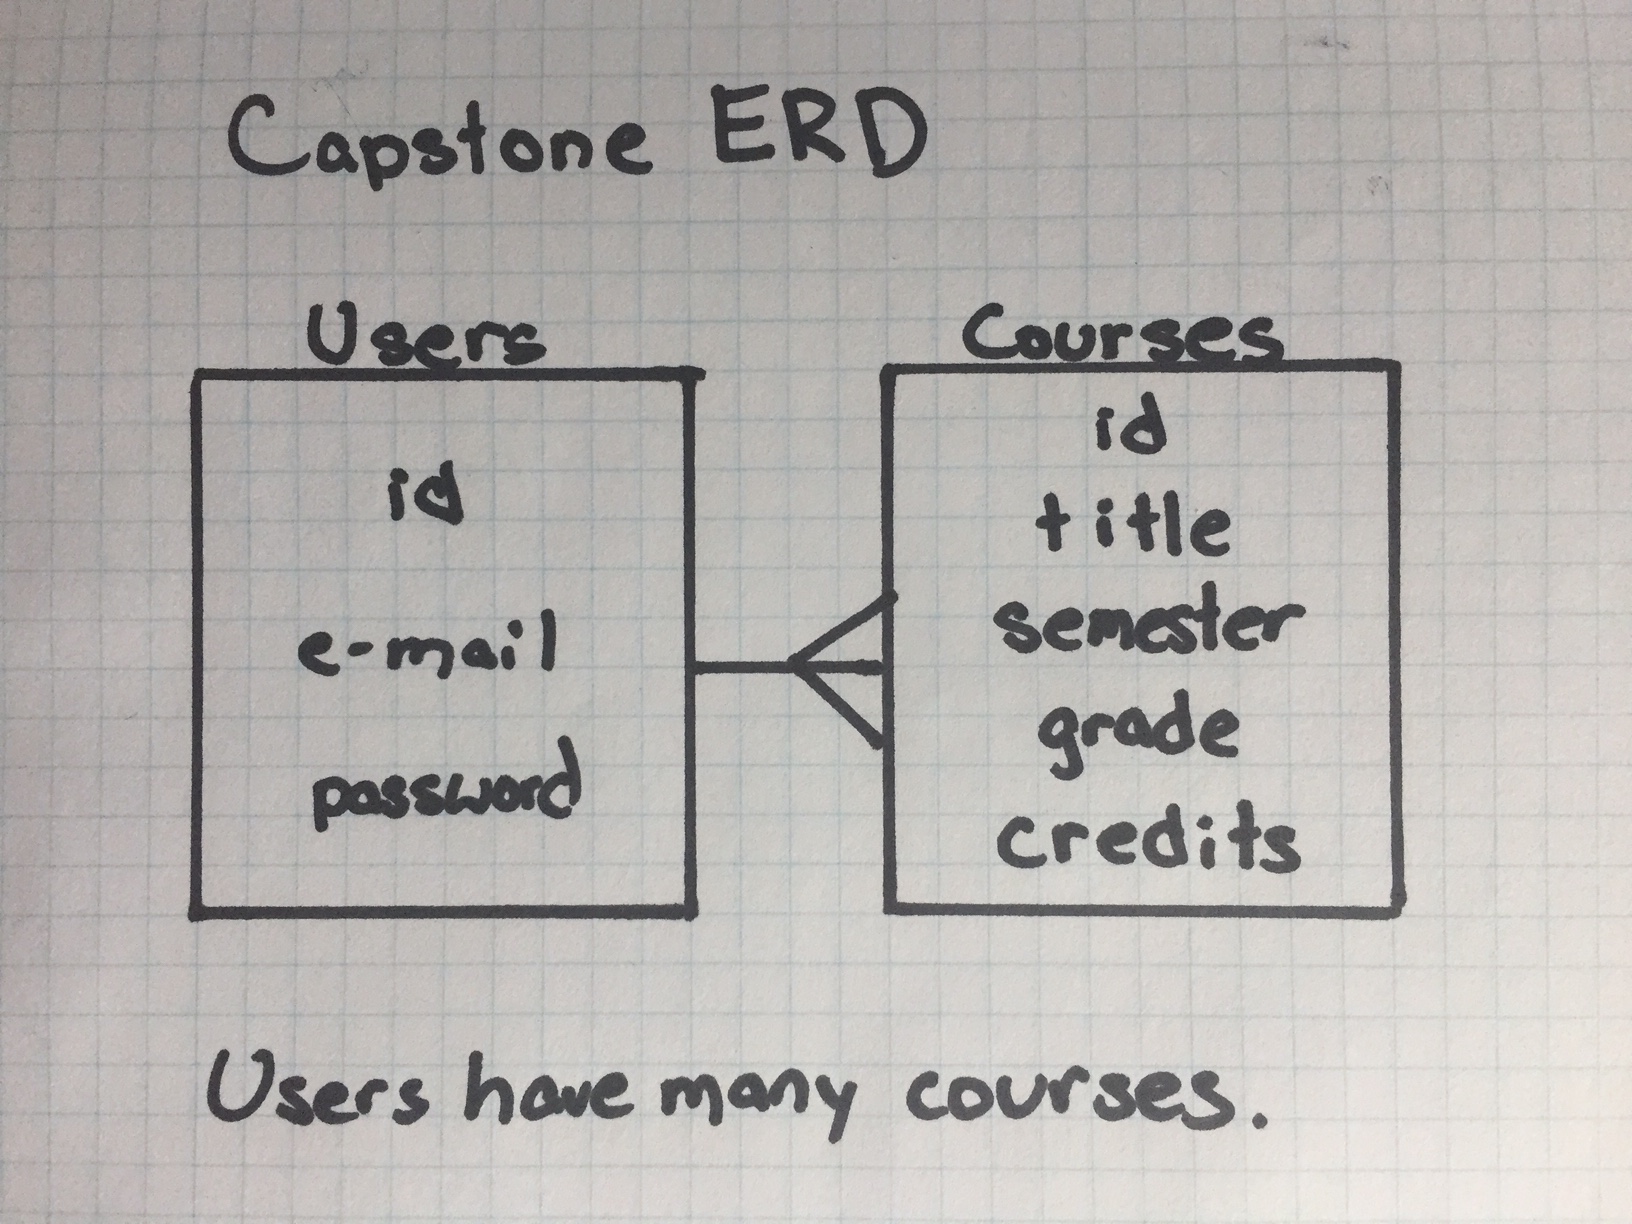 Capstone ERD
Users
id
e-mail
password
Courses
id
title
semester
grade
credits
Users have many courses.